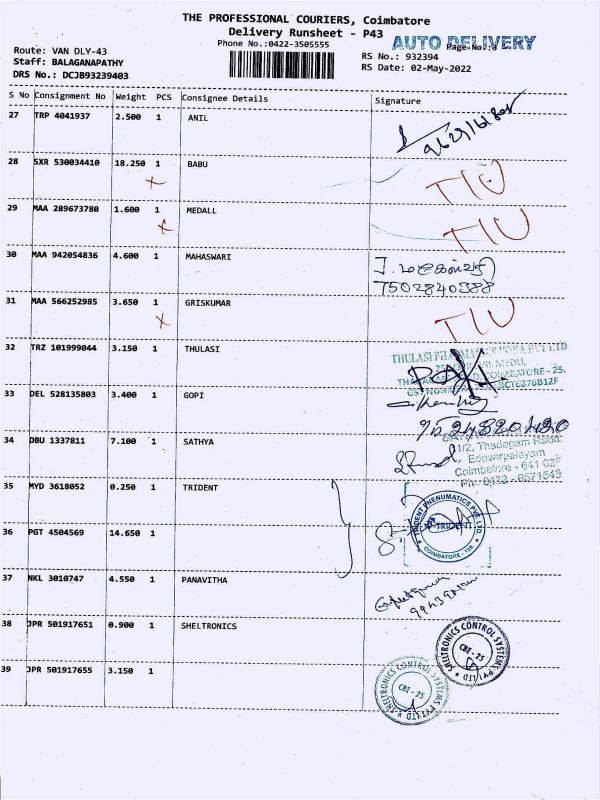 THE PROFESSIONAL COURIERS, Coimbatore
Delivery Runsheet - P43
Phone No.:0422-3505555
AUTO DELIVERY
Page No.:3
Route: VAN DLY-43
Staff: BALAGANAPATHY
DRS No.: DCJB93239403
RS No.: 932394
RS Date: 02-May-2022
S No Consignment No Weight PCS Consignee Details Signature
27 TRP 4041937 2.500 1 ANIL
28 SXR 530034410 18.250 1 BABU TIU
29 MAA 289673780 1.600 1 MEDALL TIU
30 MAA 942054836 4.600 1 MAHASWARI
7502840388
31 MAA 566252985 3.650 1 GRISKUMAR TIU
32 TRZ 101999044 3.150 1 THULASI
THULASI PHARMACIES INDIA PVT LTD
COIMBATORE - 25.
33 DEL 528135803 3.400 1 GOPI
34 DBU 1337811 7.100 1 SATHYA
1/2, Thadagam Road
Edayarpalayam
Coimbatore - 641 025
Ph: 0422 - 6571545
35 MYD 3618052 0.250 1 TRIDENT
TRIDENT PNEUMATICS PVT. LTD.
TRIDENT
COIMBATORE - 108
36 PGT 4504569 14.650 1
37 NKL 3010747 4.550 1 PANAVITHA
38 JPR 501917651 0.900 1 SHELTRONICS
SHELTRONICS CONTROL SYSTEMS PVT LTD
CBE - 25
39 JPR 501917655 3.150 1
SHELTRONICS CONTROL SYSTEMS PVT LTD
CBE - 25